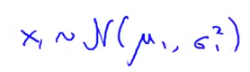 x₁ ~ N(μ₁, σ₁²)